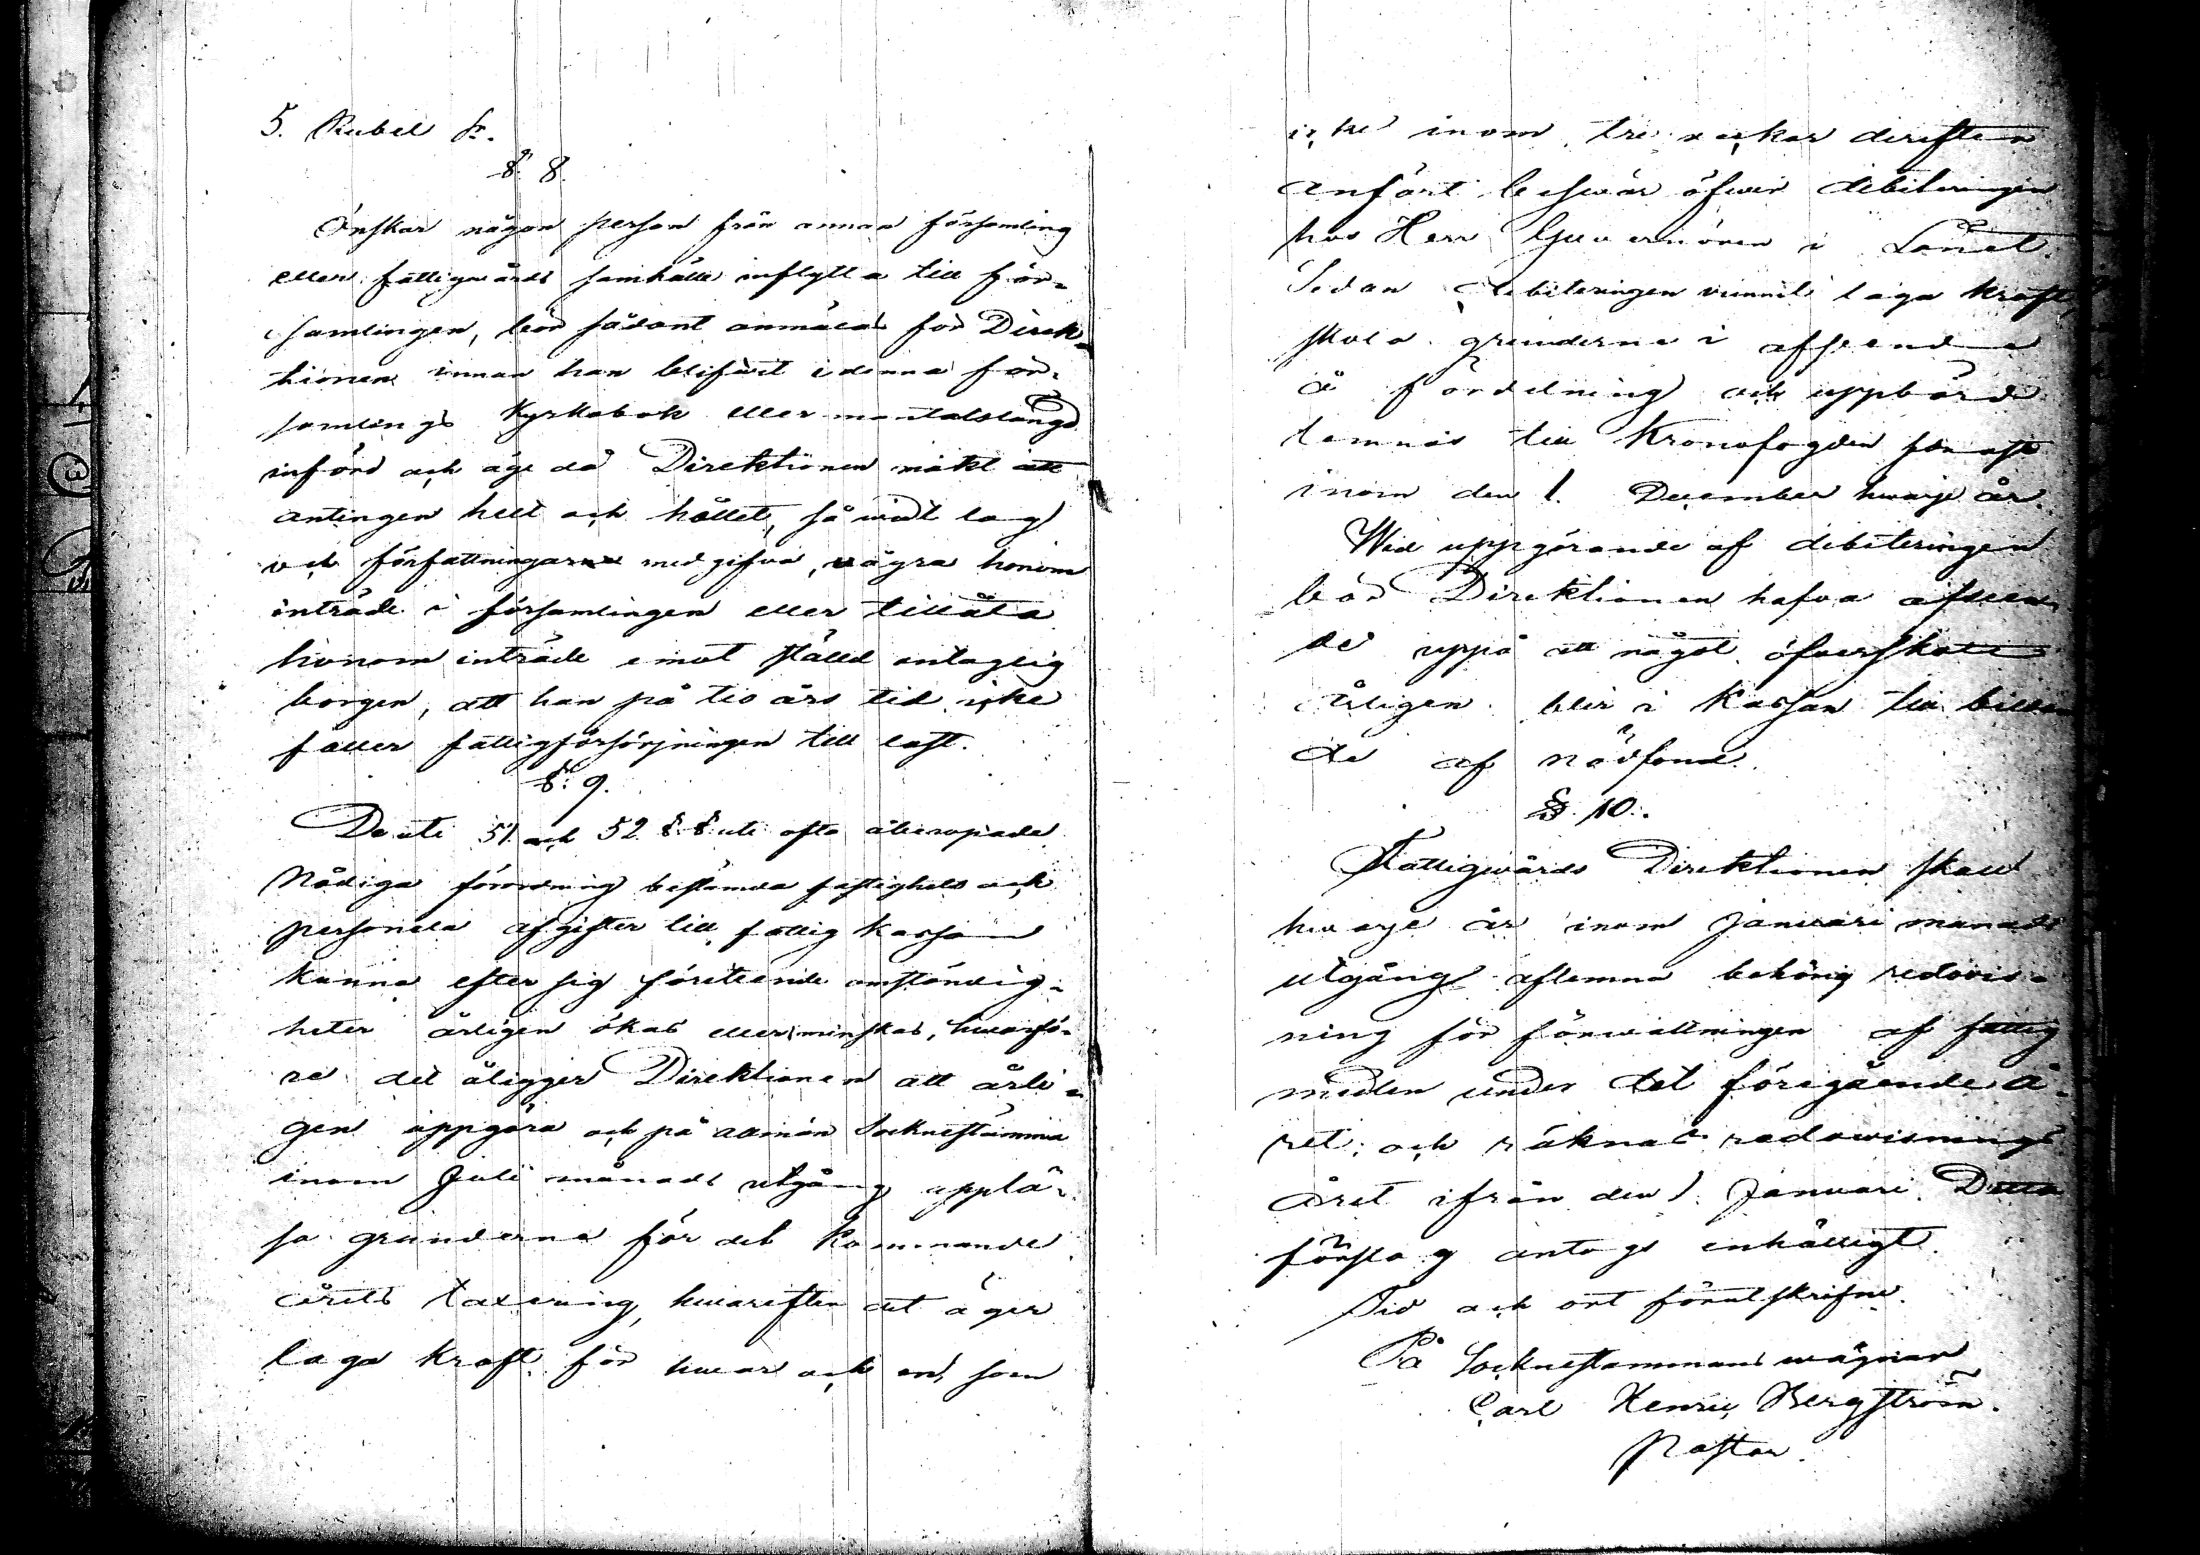 5. Rubel Sr.
§. 8.
Önskar någon person från annan församling
eller fattigwårds samhälle inflytta till för-
samlingen, bör sådant anmälas för Direk-
tionen innan han blifwit i denna för-
samlings Kyrkobok eller mantalslängd
införd och äge då Direktionen makt att
antingen helt och hållet, så widt lag
och författningarne medgifva, wägra honom
inträde i församlingen eller tillåta
honom inträde emot ställd antaglig
borgen, att han på tio års tid icke
faller fattigförsörjningen till last.
§. 9.
De uti 51. och 52 §.§. uti ofta åberopade
Nådiga förordning bestämda fastighets och
personela afgifter till fattig kassan
kunna efter sig företeende omständig-
heter årligen ökas eller minskas, hwarfö-
re det åligger Direktionen att årli-
gen uppgöra och på allmän Socknestämma
inom Juli månads utgång upplä-
sa grunderna för det kommande
årets taxering, hwarefter det äger
laga kraft för hwar och en, som
icke inom tre weckor derefter
anfört beswär öfwer debiteringen
hos Herr Guvernören i Länet.
Sedan debiteringen vunnit laga kraft,
skola grunderna i afseende
å fördelning och uppbörd
lemnas till Kronofogden för att
inom den 1. December hwarje år.
Wid uppgörande af debiteringen
bör Direktionen hafva afseen-
de uppå att något öfverskott
årligen blir i Kassan till bildan
de af nödfond.
§. 10.
Fattigwårds Direktionen skall
hwarje år inom Januari månads
utgång aflemna behörig redovis-
ning för förwaltningen af fattig
medlen under det föregående å-
ret; och räknas redowisnings
året ifrån den 1. Januari. Detta
förslag antogs enhälligt.
Tid och ort förutskrifne.
På Socknestämmans wägnar
Carl Henric Bergström.
Pastor.